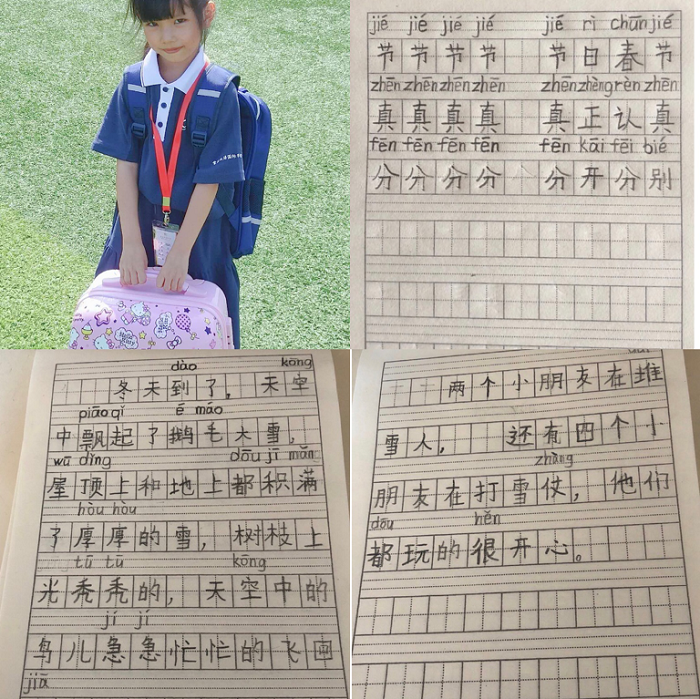 jié jié jié jié jié rì chūn jié
节节节节 节日春节
zhēn zhēn zhēn zhēn zhēn zhèng rèn zhēn
真真真真 真正认真
fēn fēn fēn fēn fēn kāi fēi bié
分分分分 分开分别
dào kōng
冬天到了，天空
piāo qǐ é máo
中飘起了鹅毛大雪，
wū dǐng dōu jī mǎn
屋顶上和地上都积满
hòu hòu
了厚厚的雪，树枝上
tū tū kōng
光秃秃的，天空中的
jí jí
鸟儿急急忙忙的飞回
jiā
两个小朋友在堆
雪人，还有四个小
zhàng
朋友在打雪仗，他们
dōu hěn
都玩的很开心。